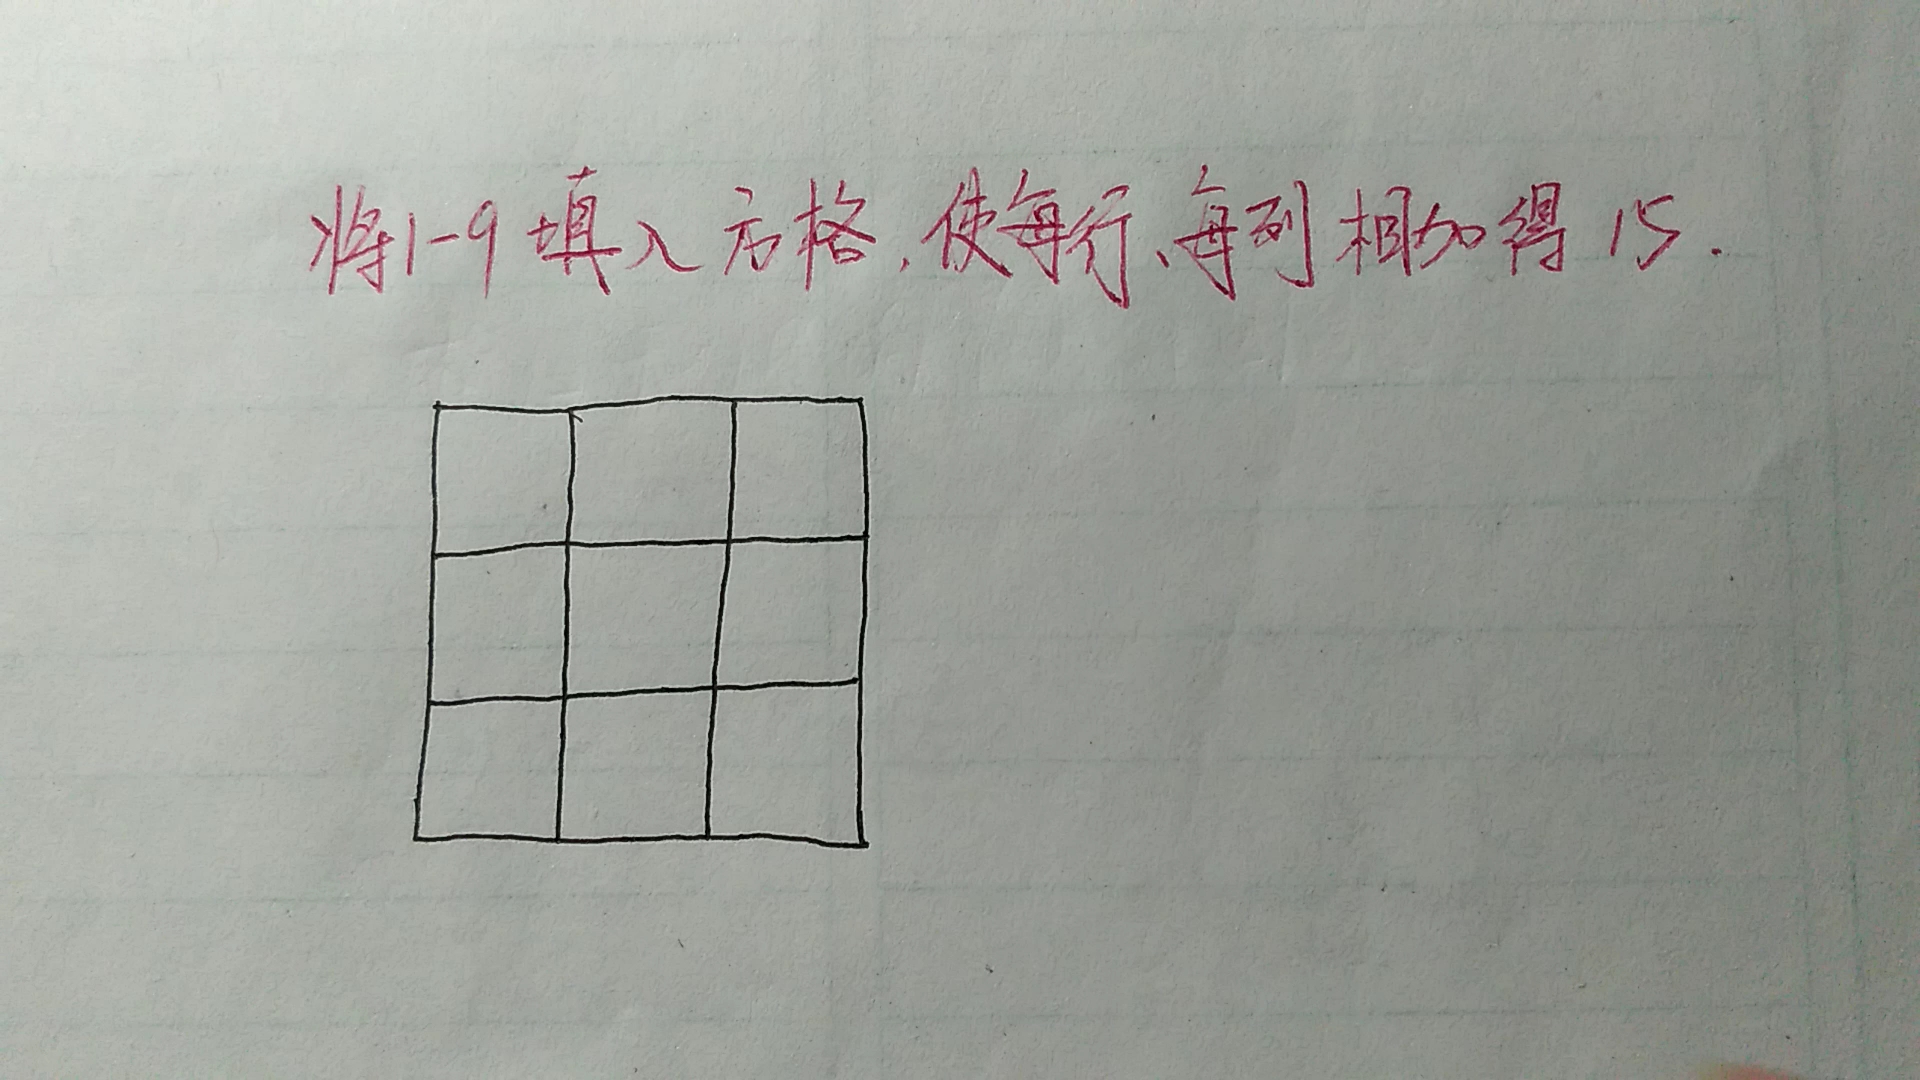 将1-9填入方格,使每行、每列相加得15.